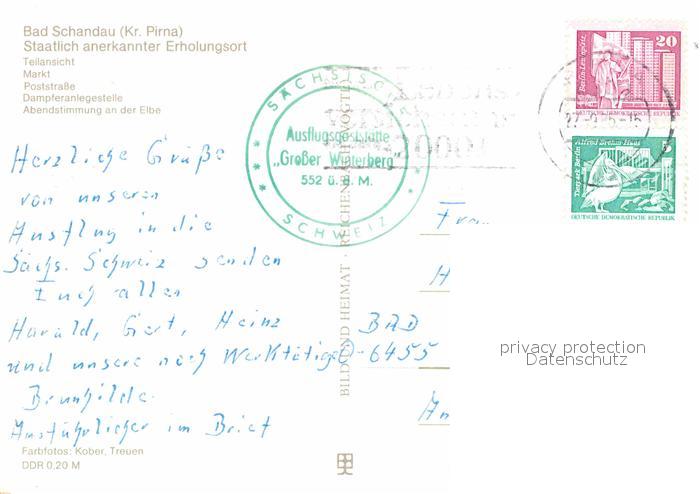 Bad Schandau (Kr. Pirna)
Staatlich anerkannter Erholungsort
Teilansicht
Markt
Poststraße
Dampferanlegestelle
Abendstimmung an der Elbe
Herzliche Grüße
von unseren
Ausflug in die
Sächs. Schweiz senden
Euch allen
Harald, Gert, Heinz
und unsere noch Werktätige
Brunhilde.
Ausführlicher im Brief
Farbfotos: Kober, Treuen
DDR 0,20 M
SÄCHSISCHE
Ausflugsgaststätte
„Großer Winterberg"
552 ü. d. M.
SCHWEIZ
BILD UND HEIMAT · REICHENBACH (VOGTL)
20
DEUTSCHE DEMOKRATISCHE REPUBLIK
Tierpark Berlin
Alfred-Brehm-Haus
DEUTSCHE DEMOKRATISCHE REPUBLIK
H
BRD
D-6455
An
privacy protection
Datenschutz